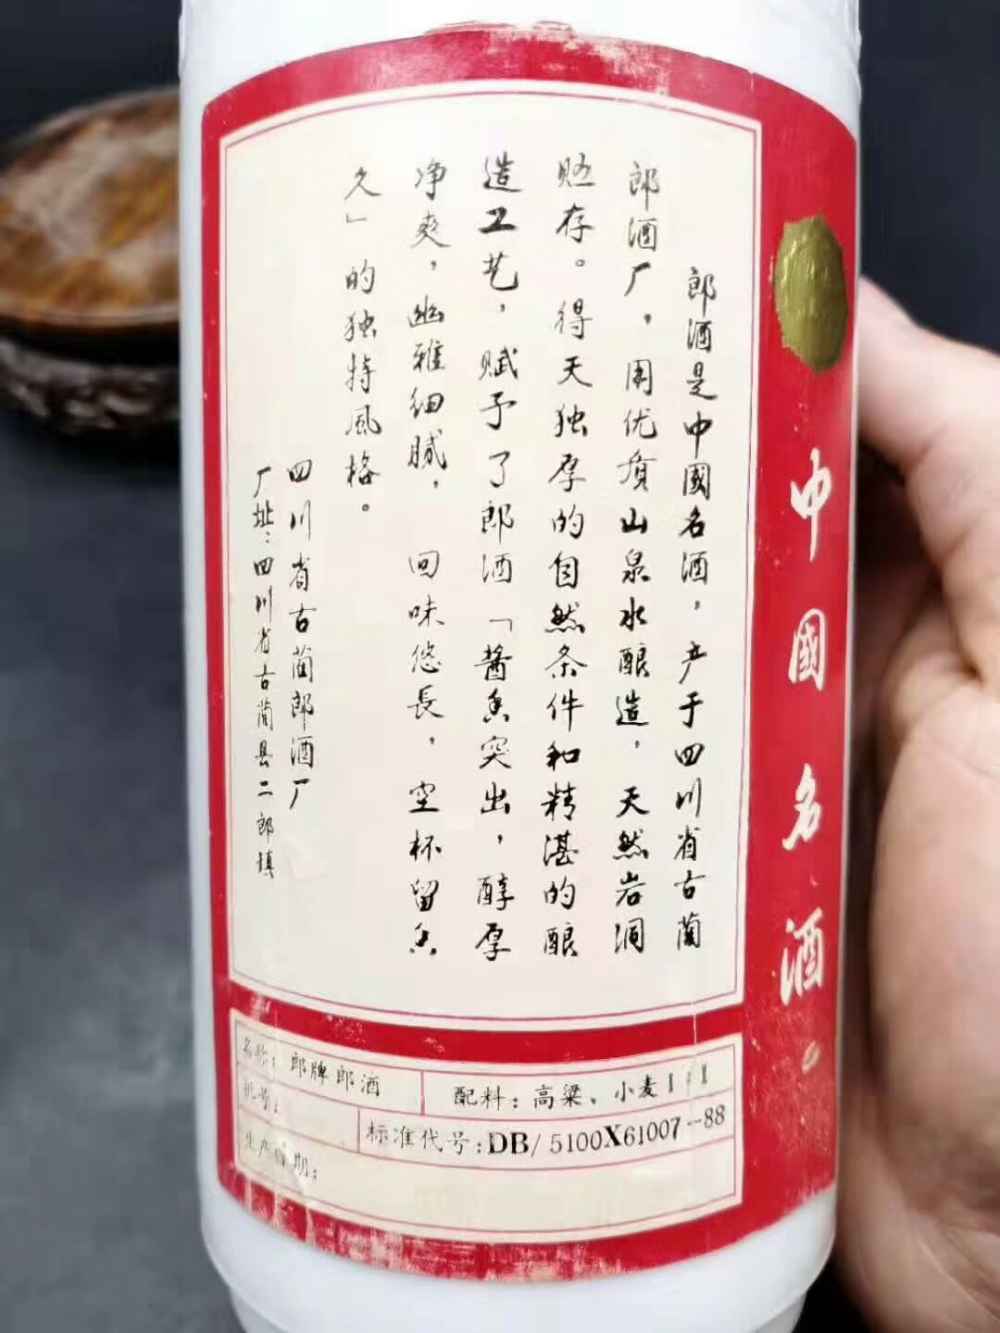 中國名酒
郎酒是中國名酒，产于四川省古蔺
郎酒厂，用优质山泉水酿造，天然岩洞
贮存。得天独厚的自然条件和精湛的酿
造工艺，赋予了郎酒「酱香突出，醇厚
净爽，幽雅细腻，回味悠長，空杯留香
久」的独特风格。
四川省古蔺郎酒厂
厂址：四川省古蔺县二郎镇
名称：郎牌郎酒
配料：高粱、小麦
批号：
标准代号：DB/5100X61007--88
生产日期：